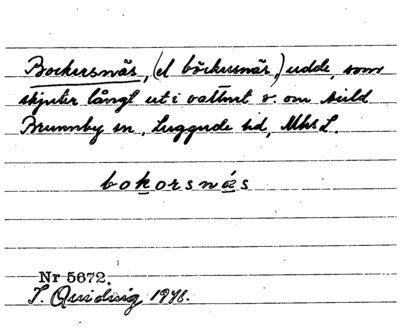 Bockersnäs, (el böckersnäs,) udde, som
skjuter långt ut i vattnet v. om
Brunnby sn, Luggude hd, Mhs L.
bokorsnäs
Nr 5672.
J. Qvidvig 1976.